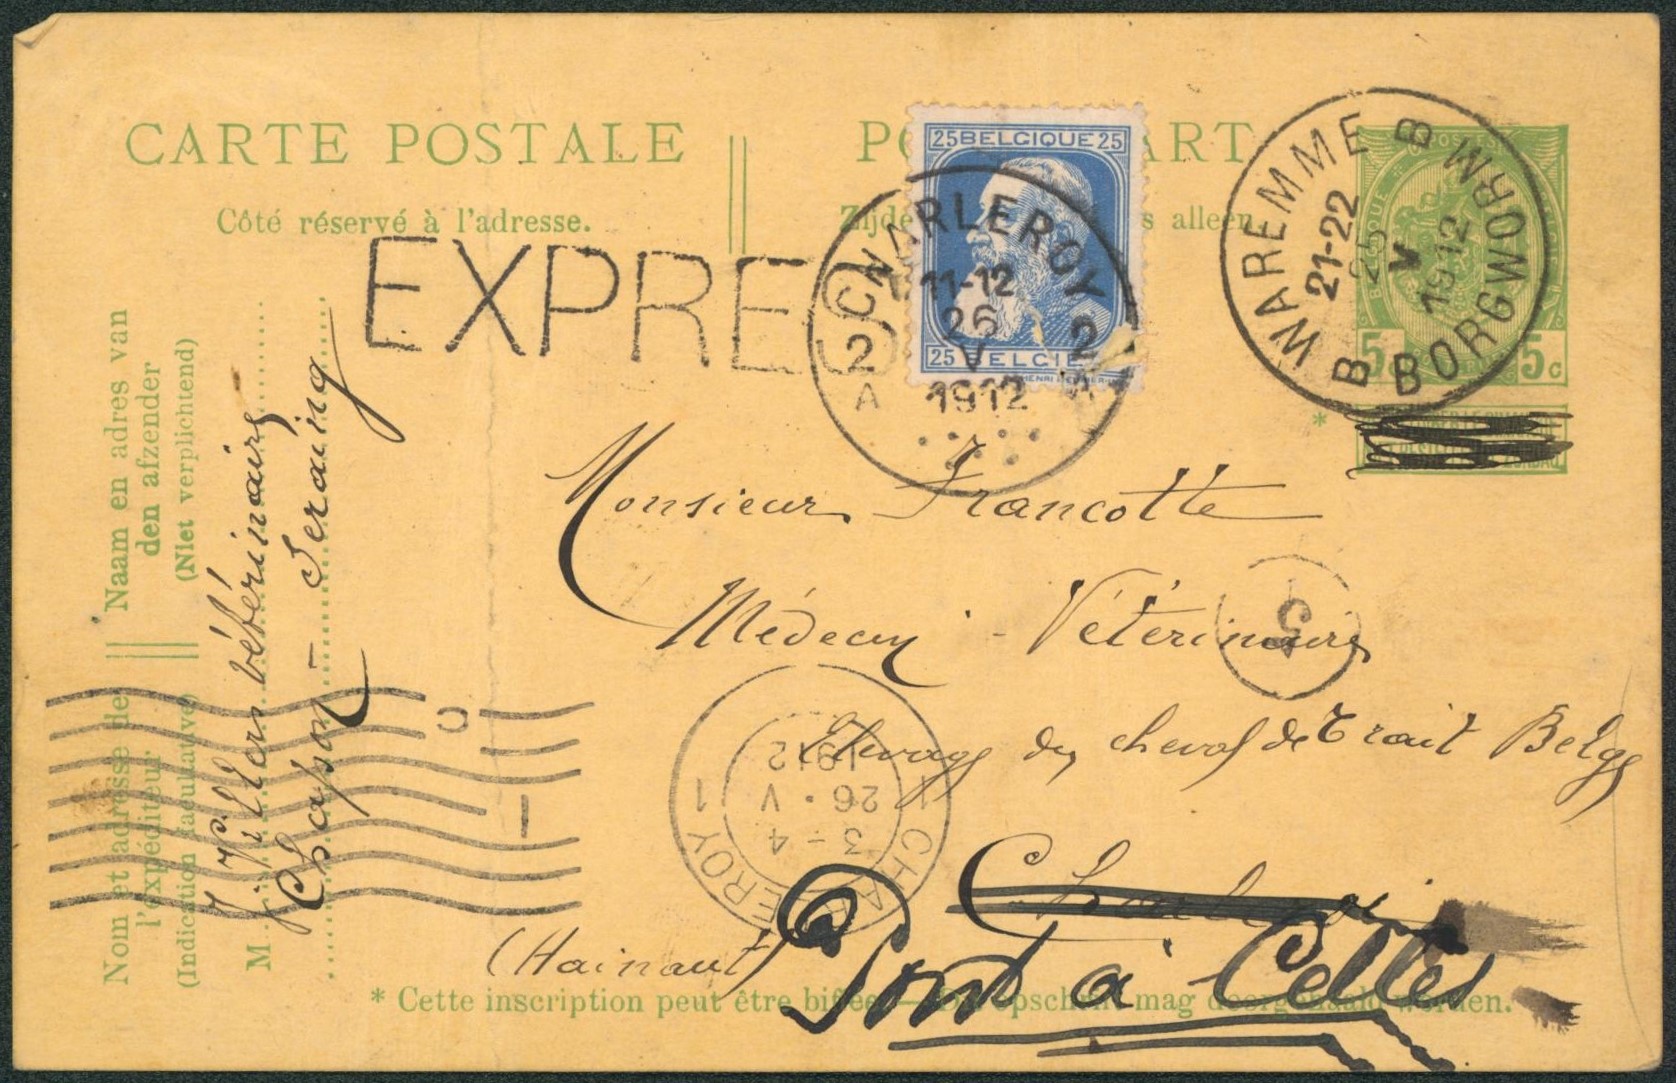 CARTE POSTALE
Côté réservé à l'adresse.
EXPRES
25 BELGIQUE 25
25 BELGIE
CHARLEROY
11-12
26
V
1912
2 2
A A
WAREMME
21-22
25
V
1912
BORGWORM
B B
5 5c
*
Monsieur Francotte
Médecin - Vétérinaire
5
Elevage du cheval de Trait Belge
(Hainaut)
Pont à Celles
1 CHARLEROY 1
3-4
26 · V
1912
* Cette inscription peut être biffée. — Dit opschrift mag doorgehaald worden.
Naam en adres van
den afzender
(Niet verplichtend)
Nom et adresse de
l'expéditeur
(Indication facultative)
M
Chapon-Seraing